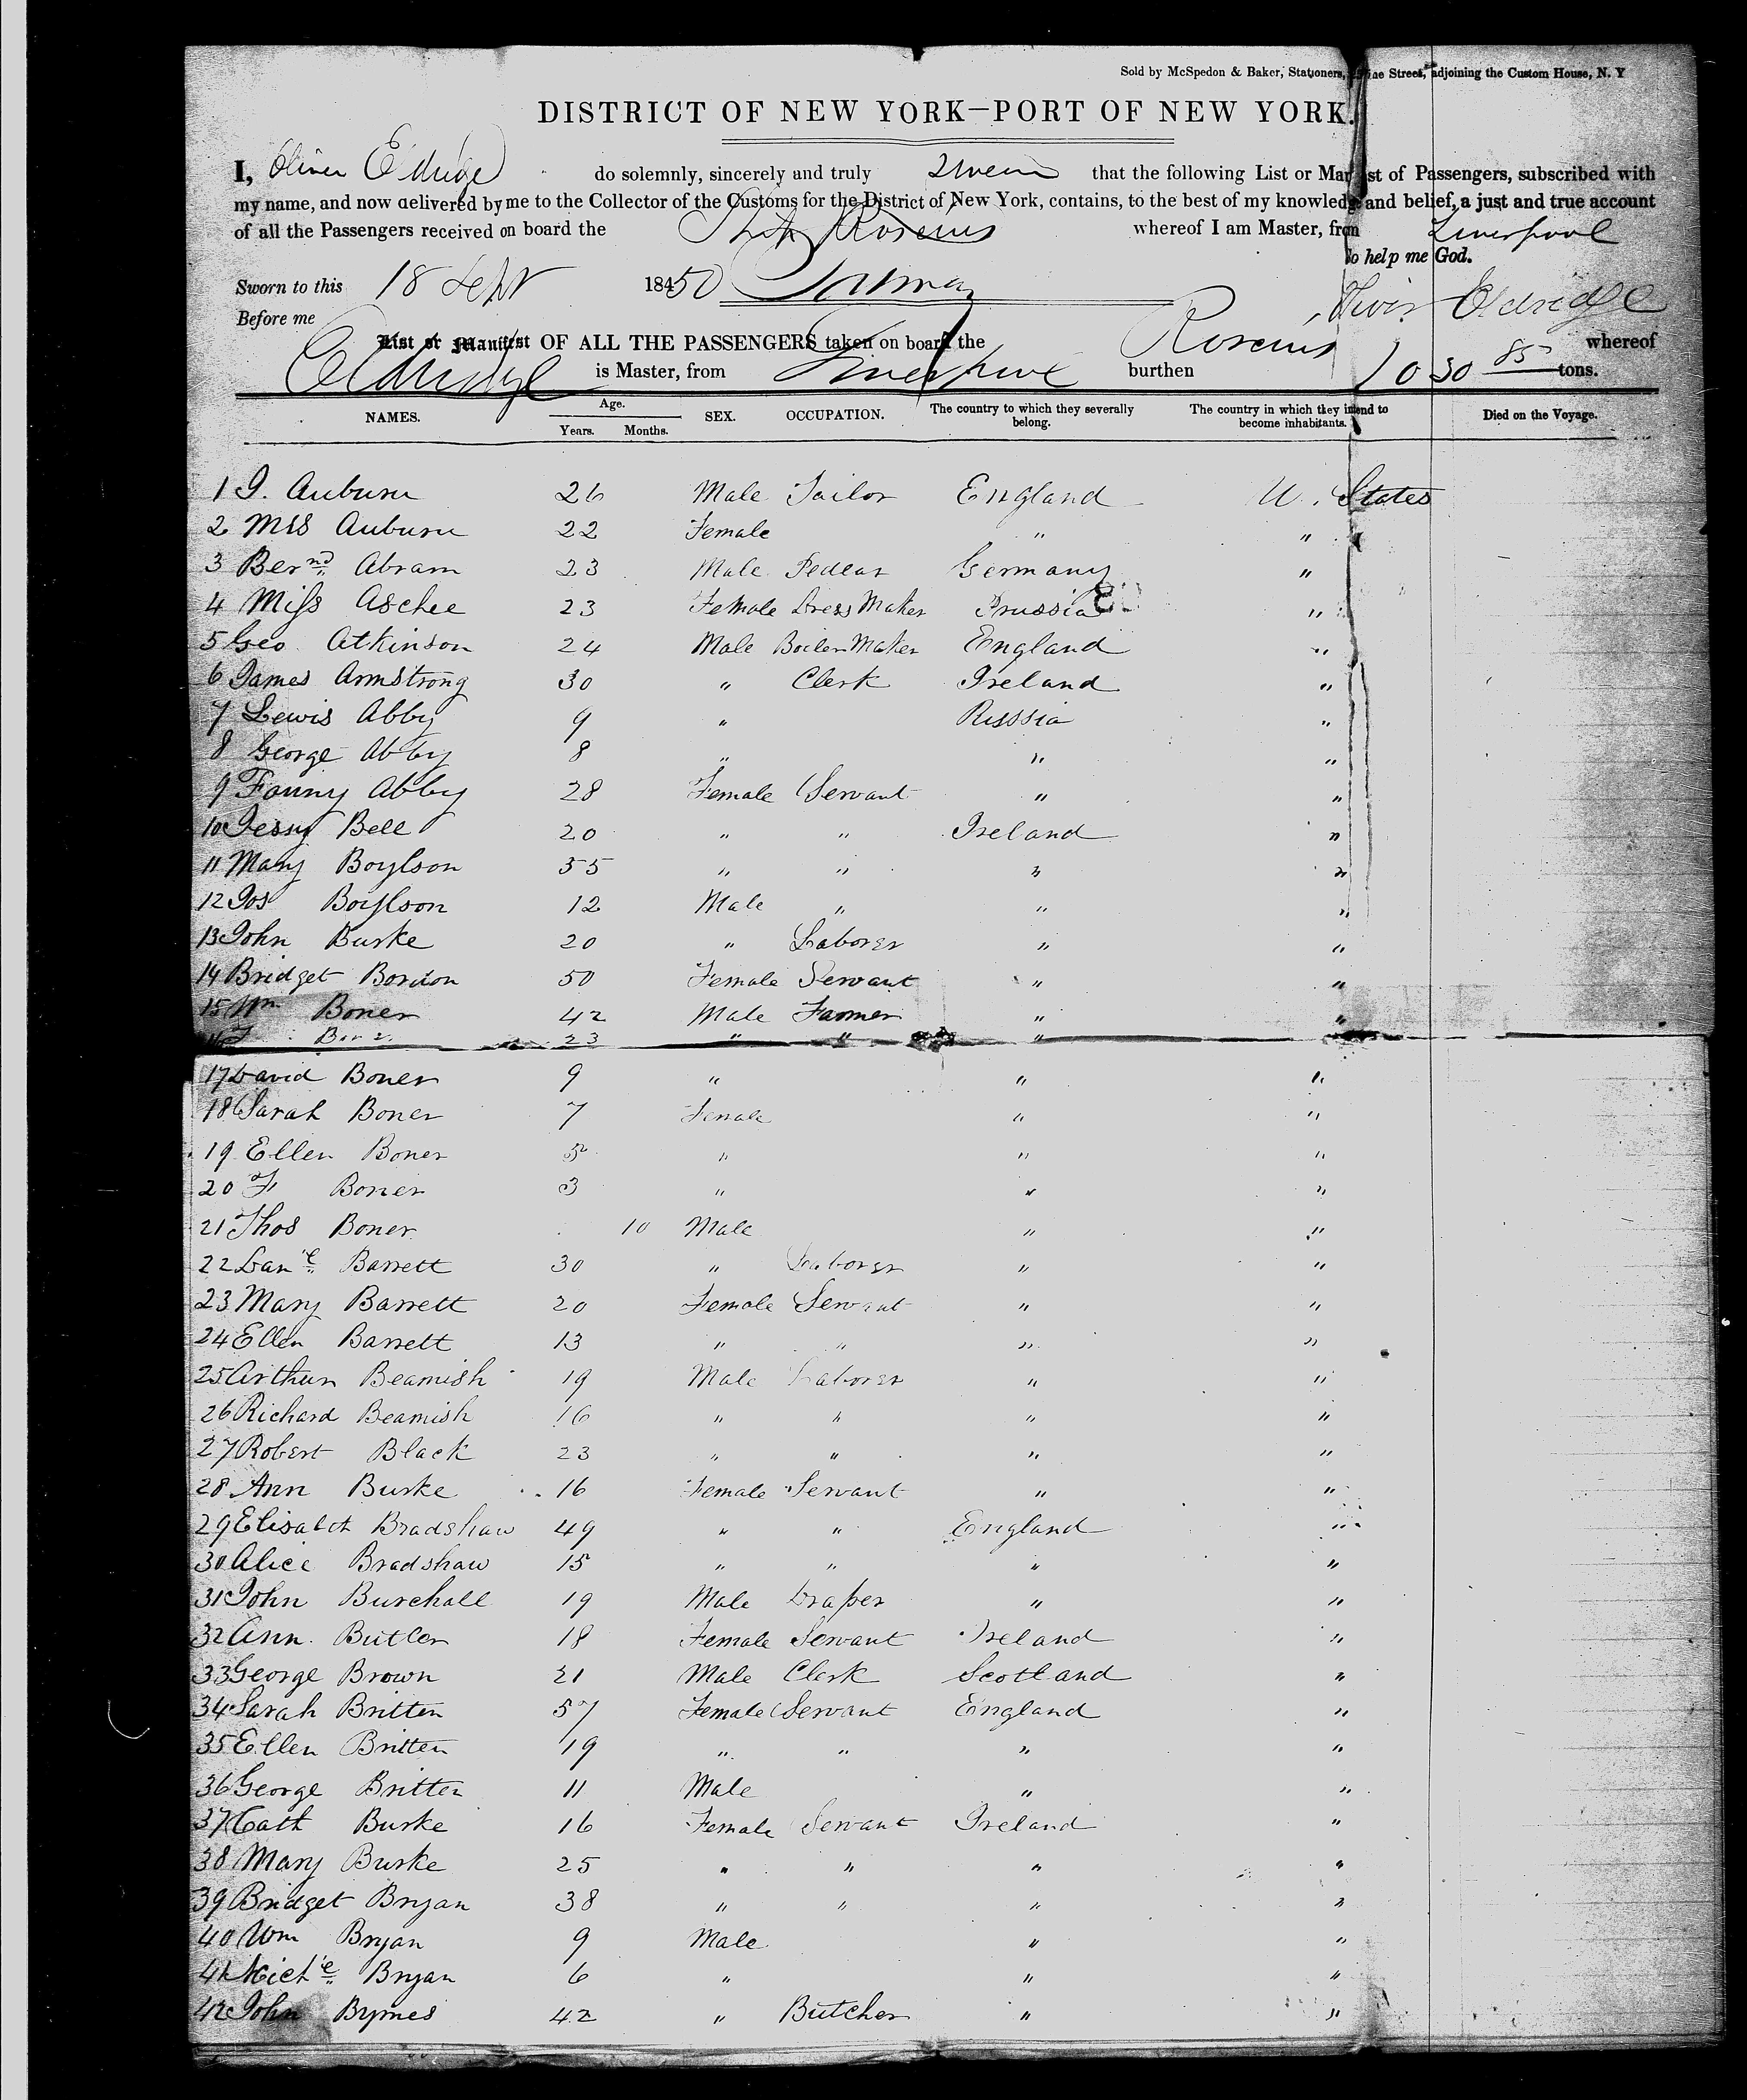 Sold by McSpedon & Baker, Stationers, Pine Street, adjoining the Custom House, N. Y
DISTRICT OF NEW YORK—PORT OF NEW YORK.
I, Oliver Eldridge do solemnly, sincerely and truly swear that the following List or Manifest of Passengers, subscribed with
my name, and now delivered by me to the Collector of the Customs for the District of New York, contains, to the best of my knowledge and belief, a just and true account
of all the Passengers received on board the Ship Roscius whereof I am Master, from Liverpool
So help me God.
Sworn to this 18 Sept 1850
Before me Oliver Eldridge
List or Manifest OF ALL THE PASSENGERS taken on board the Roscius whereof
Eldridge is Master, from Liverpool burthen 1030 85 tons.
NAMES. Age. Years. Months. SEX. OCCUPATION. The country to which they severally belong. The country in which they intend to become inhabitants. Died on the Voyage.
1 J. Auburn 26 Male Tailor England U. States
2 Mrs Auburn 22 Female " "
3 Bernd Abram 23 Male Pedlar Germany "
4 Miss Aschee 23 Female Dress Maker Prussia "
5 Geo Atkinson 24 Male Boiler Maker England "
6 James Armstrong 30 " Clerk Ireland "
7 Lewis Abby 9 " Russia "
8 George Abby 8 " " "
9 Fanny Abby 28 Female Servant " "
10 Jessy Bell 20 " " Ireland "
11 Mary Boylson 35 " " " "
12 Jos Boylson 12 Male " " "
13 John Burke 20 " Laborer " "
14 Bridget 50 Female Servant " "
15 Wm Boner 42 Male Farmer " "
16 23 " " "
17 David Boner 9 " " "
18 Sarah Boner 7 Female " "
19 Ellen Boner 5 " " "
20 F Boner 3 " " "
21 Thos Boner 10 Male " "
22 Danl Barrett 30 " Laborer " "
23 Mary Barrett 20 Female Servant " "
24 Ellen Barrett 13 " " " "
25 Arthur Beamish 19 Male Laborer " "
26 Richard Beamish 16 " " " "
27 Robert Black 23 " " " "
28 Ann Burke 16 Female Servant " "
29 Elisabth Bradshaw 49 " " England "
30 Alice Bradshaw 15 " " " "
31 John Burchall 19 Male Draper " "
32 Ann Butler 18 Female Servant Ireland "
33 George Brown 21 Male Clerk Scotland "
34 Sarah Britten 57 Female Servant England "
35 Ellen Britten 19 " " " "
36 George Britten 11 Male " "
37 Cath Burke 16 Female Servant Ireland "
38 Mary Burke 25 " " " "
39 Bridget Bryan 38 " " " "
40 Wm Bryan 9 Male " "
41 Michl Bryan 6 " " "
42 John Byrnes 42 " Butcher " "